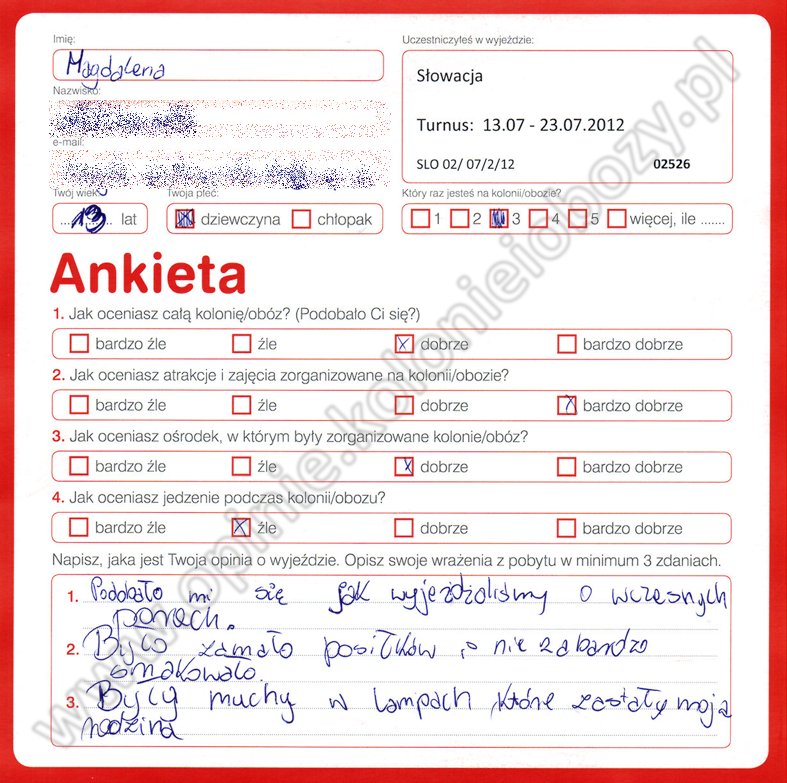 Imię:
Magdalena
Nazwisko:
e-mail:
Twój wiek:
13 lat
Twoja płeć:
dziewczyna chłopak
Uczestniczyłeś w wyjeździe:
Słowacja
Turnus: 13.07 - 23.07.2012
SLO 02/ 07/2/12 02526
Który raz jesteś na kolonii/obozie?
1 2 3 4 5 więcej, ile .......
Ankieta
1. Jak oceniasz całą kolonię/obóz? (Podobało Ci się?)
bardzo źle źle dobrze bardzo dobrze
2. Jak oceniasz atrakcje i zajęcia zorganizowane na kolonii/obozie?
bardzo źle źle dobrze bardzo dobrze
3. Jak oceniasz ośrodek, w którym były zorganizowane kolonie/obóz?
bardzo źle źle dobrze bardzo dobrze
4. Jak oceniasz jedzenie podczas kolonii/obozu?
bardzo źle źle dobrze bardzo dobrze
Napisz, jaka jest Twoja opinia o wyjeździe. Opisz swoje wrażenia z pobytu w minimum 3 zdaniach.
1. Podobało mi się jak wyjeżdżaliśmy o wczesnych
porach.
2. Było zamało posiłków, nie zabardzo
smakowało.
3. Były muchy w lampach które zastały moja
rodzina
www.opinie.kolonieiobozy.pl